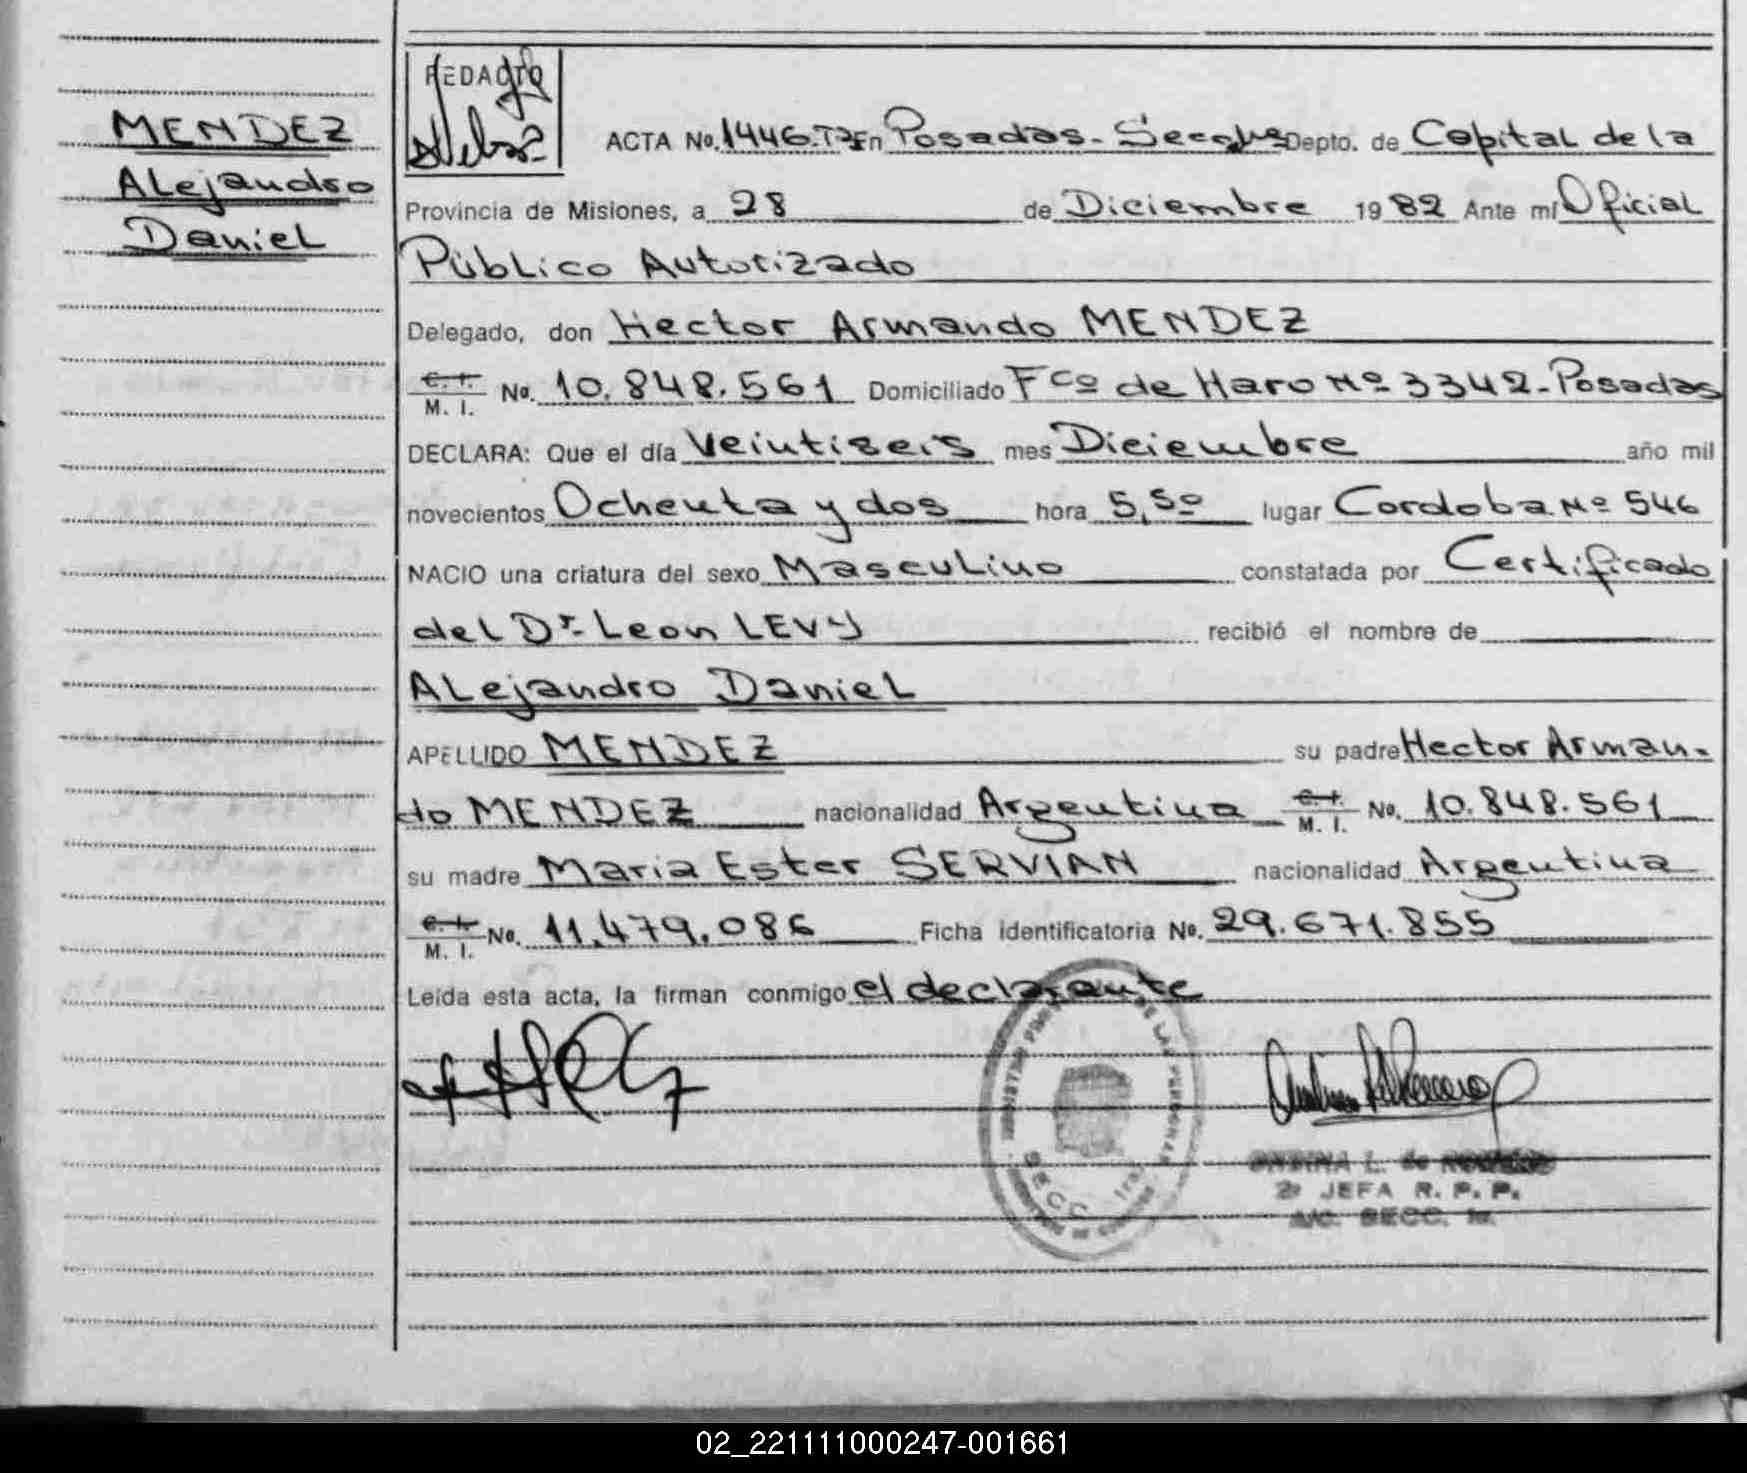 MENDEZ
Alejandro
Daniel
REDACTO
ACTA No. 1446.T3 En Posadas - Secc. 1ra Depto. de Capital de la
Provincia de Misiones, a 28 de Diciembre 1982 Ante mí Oficial
Público Autorizado
Delegado, don Hector Armando MENDEZ
C. I. M. I. No. 10.848.561 Domiciliado Fco de Haro Nº 3342 - Posadas
DECLARA: Que el día Veintiseis mes Diciembre año mil
novecientos Ochenta y dos hora 5,50 lugar Cordoba Nº 546
NACIO una criatura del sexo Masculino constatada por Certificado
del Dr. Leon LEVY recibió el nombre de
Alejandro Daniel
APELLIDO MENDEZ su padre Hector Arman-
do MENDEZ nacionalidad Argentina C. I. M. I. No. 10.848.561
su madre Maria Ester SERVIAN nacionalidad Argentina
C. I. M. I. No. 11.479.086 Ficha identificatoria No. 29.671.855
Leida esta acta, la firman conmigo el declarante
SECC. 1ra
L. de
2ª JEFA R. P. P.
A/C. SECC. 1ª
02_221111000247-001661